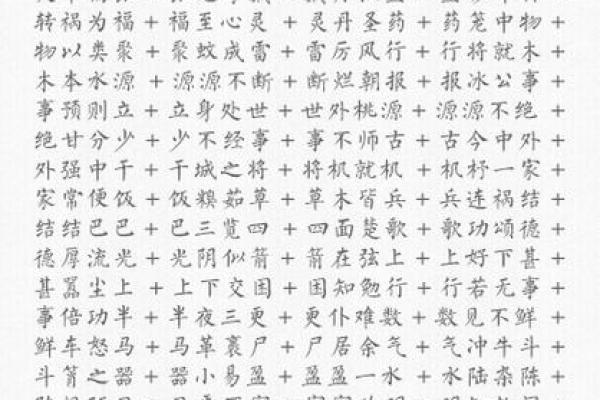 转祸为福+福至心灵+灵丹圣药+药笼中物+
物以类聚+聚蚊成雷+雷厉风行+行将就木+
木本水源+源源不断+断烂朝报+报冰公事+
事预则立+立身处世+世外桃源+源源不绝+
绝甘分少+少不经事+事不师古+古今中外+
外强中干+干城之将+将机就机+机杼一家+
家常便饭+饭糗茹草+草木皆兵+兵连祸结+
结结巴巴+巴三览四+四面楚歌+歌功颂德+
德厚流光+光阴似箭+箭在弦上+上好下甚+
甚嚣尘上+上下交困+困知勉行+行若无事+
事倍功半+半夜三更+更仆难数+数见不鲜+
鲜车怒马+马革裹尸+尸居余气+气冲牛斗+
斗筲之器+器小易盈+盈盈一水+水陆杂陈+